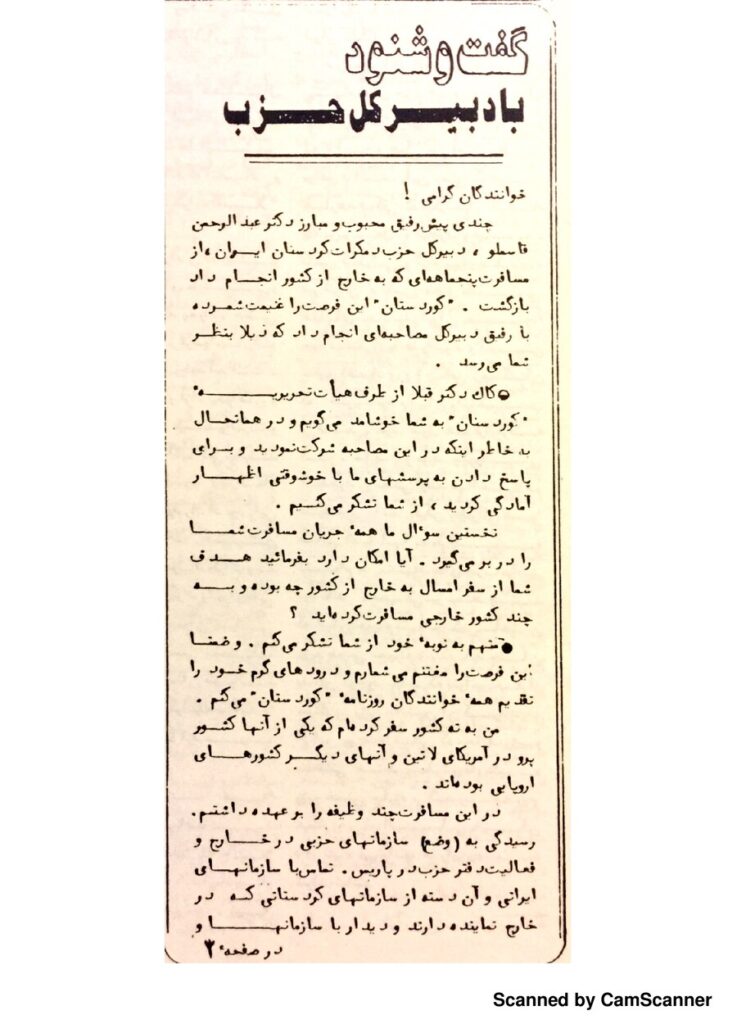 گفت و شنود
با دبیر کل حزب
خوانندگان گرامی !
چندی پیش رفیق محبوب و مبارز دکتر عبدالرحمن
قاسملو ، دبیرکل حزب دمکرات کردستان ایران ، از
مسافرت پنجماهه‌ای که به خارج از کشور انجام داد
بازگشت . "کوردستان" این فرصت را غنیمت شمرده
با رفیق دبیرکل مصاحبه‌ای انجام داد که ذیلا بنظر
شما می‌رسد .
کاک دکتر قبلا از طرف هیأت تحریریهٔ
"کوردستان" به شما خوشامد می‌گویم و در همانحال
به خاطر اینکه در این مصاحبه شرکت نمودید و برای
پاسخ دادن به پرسشهای ما با خوشوقتی اظهار
آمادگی کردید ، از شما تشکر می‌کنیم .
نخستین سوال ما همهٔ جریان مسافرت شما
را در بر می‌گیرد . آیا امکان دارد بفرمائید هدف
شما از سفر امسال به خارج از کشور چه بوده و به
چند کشور خارجی مسافرت کرده‌اید ؟
منهم به نوبهٔ خود از شما تشکر می‌کنم . و ضمنا
این فرصت را مغتنم می شمارم و درودهای گرم خود را
تقدیم همهٔ خوانندگان روزنامهٔ "کوردستان" می‌کنم .
من به نه کشور سفر کرده‌ام که یکی از آنها کشور
پرو در آمریکای لاتین و آنهای دیگر کشورهای
اروپایی بوده‌اند .
در این مسافرت چند وظیفه را بر عهده داشتم .
رسیدگی به (وضع) سازمانهای حزبی در خارج و
فعالیت دفتر حزب در پاریس . تماس با سازمانهای
ایرانی و آن دسته از سازمانهای کردستانی که در
خارج نماینده دارند و دیدار با سازمانها و
در صفحهٔ ۳
Scanned by CamScanner